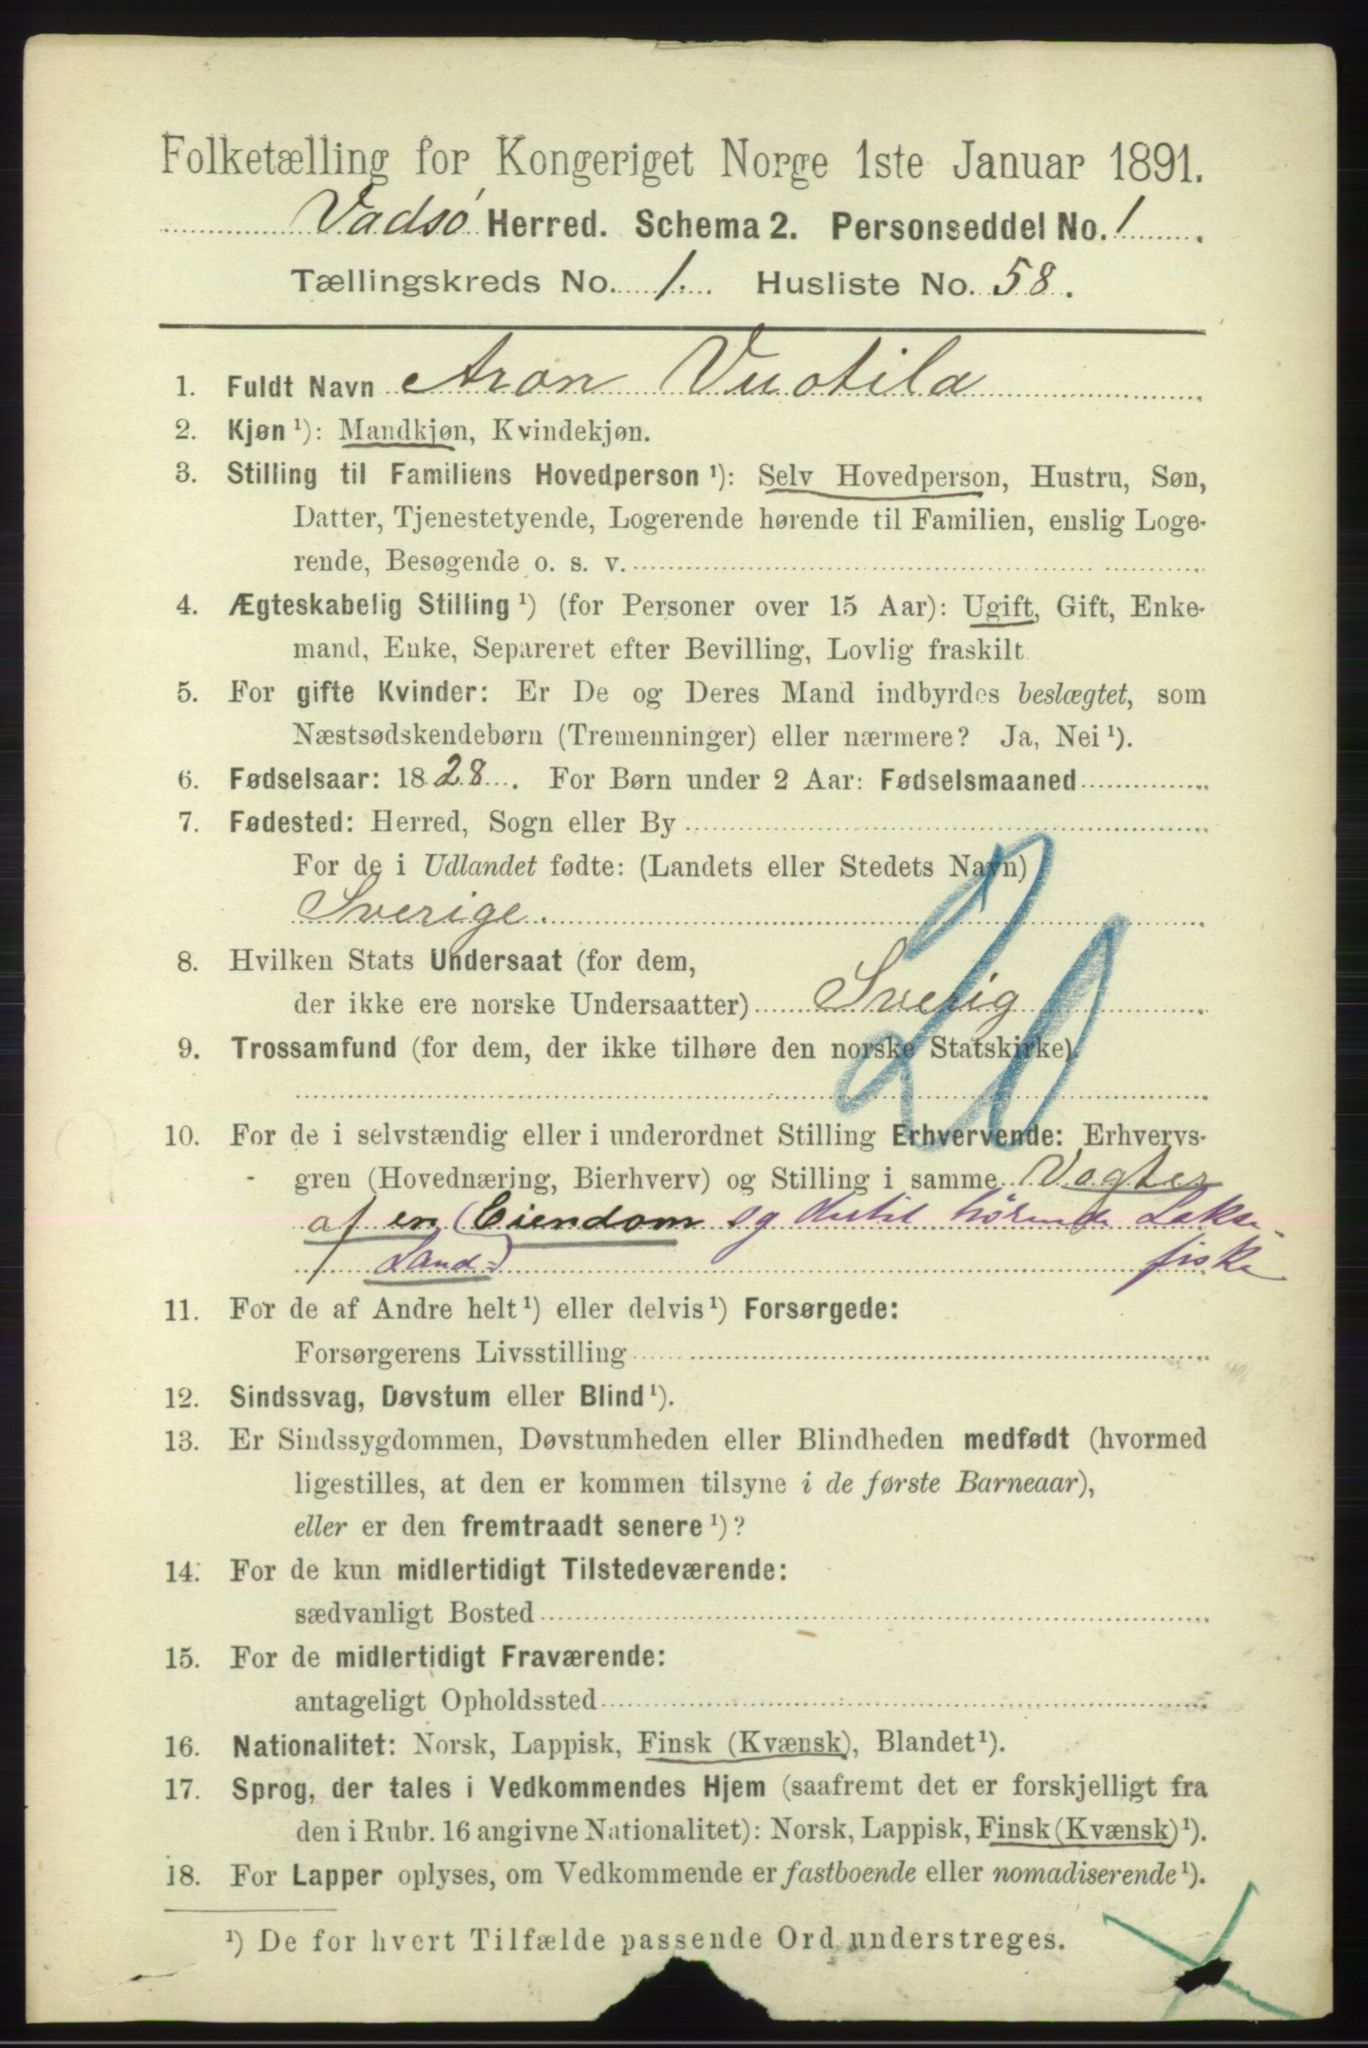 Folketælling for Kongeriget Norge 1ste Januar 1891.
Vadsø Herred. Schema 2. Personseddel No. 1.
Tællingskreds No. 1. Husliste No. 58.
1. Fuldt Navn Aron Vuotila
2. Kjøn ¹): Mandkjøn, Kvindekjøn.
3. Stilling til Familiens Hovedperson ¹): Selv Hovedperson, Hustru, Søn,
Datter, Tjenestetyende, Logerende hørende til Familien, enslig Loge-
rende, Besøgende o. s. v.
4. Ægteskabelig Stilling ¹) (for Personer over 15 Aar): Ugift, Gift, Enke-
mand, Enke, Separeret efter Bevilling, Lovlig fraskilt
5. For gifte Kvinder: Er De og Deres Mand indbyrdes beslægtet, som
Næstsødskendebørn (Tremenninger) eller nærmere? Ja, Nei ¹).
6. Fødselsaar: 1828. For Børn under 2 Aar: Fødselsmaaned
7. Fødested: Herred, Sogn eller By
For de i Udlandet fødte: (Landets eller Stedets Navn)
Sverige.
8. Hvilken Stats Undersaat (for dem,
der ikke ere norske Undersaatter) Sverig
20
9. Trossamfund (for dem, der ikke tilhøre den norske Statskirke)
10. For de i selvstændig eller i underordnet Stilling Erhvervende: Erhvervs-
gren (Hovednæring, Bierhverv) og Stilling i samme Vogter
af en (Eiendom og dertil hørende Lakse-
Land) fiske
11. For de af Andre helt ¹) eller delvis ¹) Forsørgede:
Forsørgerens Livsstilling
12. Sindssvag, Døvstum eller Blind ¹).
13. Er Sindssygdommen, Døvstumheden eller Blindheden medfødt (hvormed
ligestilles, at den er kommen tilsyne i de første Barneaar),
eller er den fremtraadt senere ¹)?
14. For de kun midlertidigt Tilstedeværende:
sædvanligt Bosted
15. For de midlertidigt Fraværende:
antageligt Opholdssted
16. Nationalitet: Norsk, Lappisk, Finsk (Kvænsk), Blandet ¹).
17. Sprog, der tales i Vedkommendes Hjem (saafremt det er forskjelligt fra
den i Rubr. 16 angivne Nationalitet): Norsk, Lappisk, Finsk (Kvænsk) ¹).
18. For Lapper oplyses, om Vedkommende er fastboende eller nomadiserende ¹).
¹) De for hvert Tilfælde passende Ord understreges.